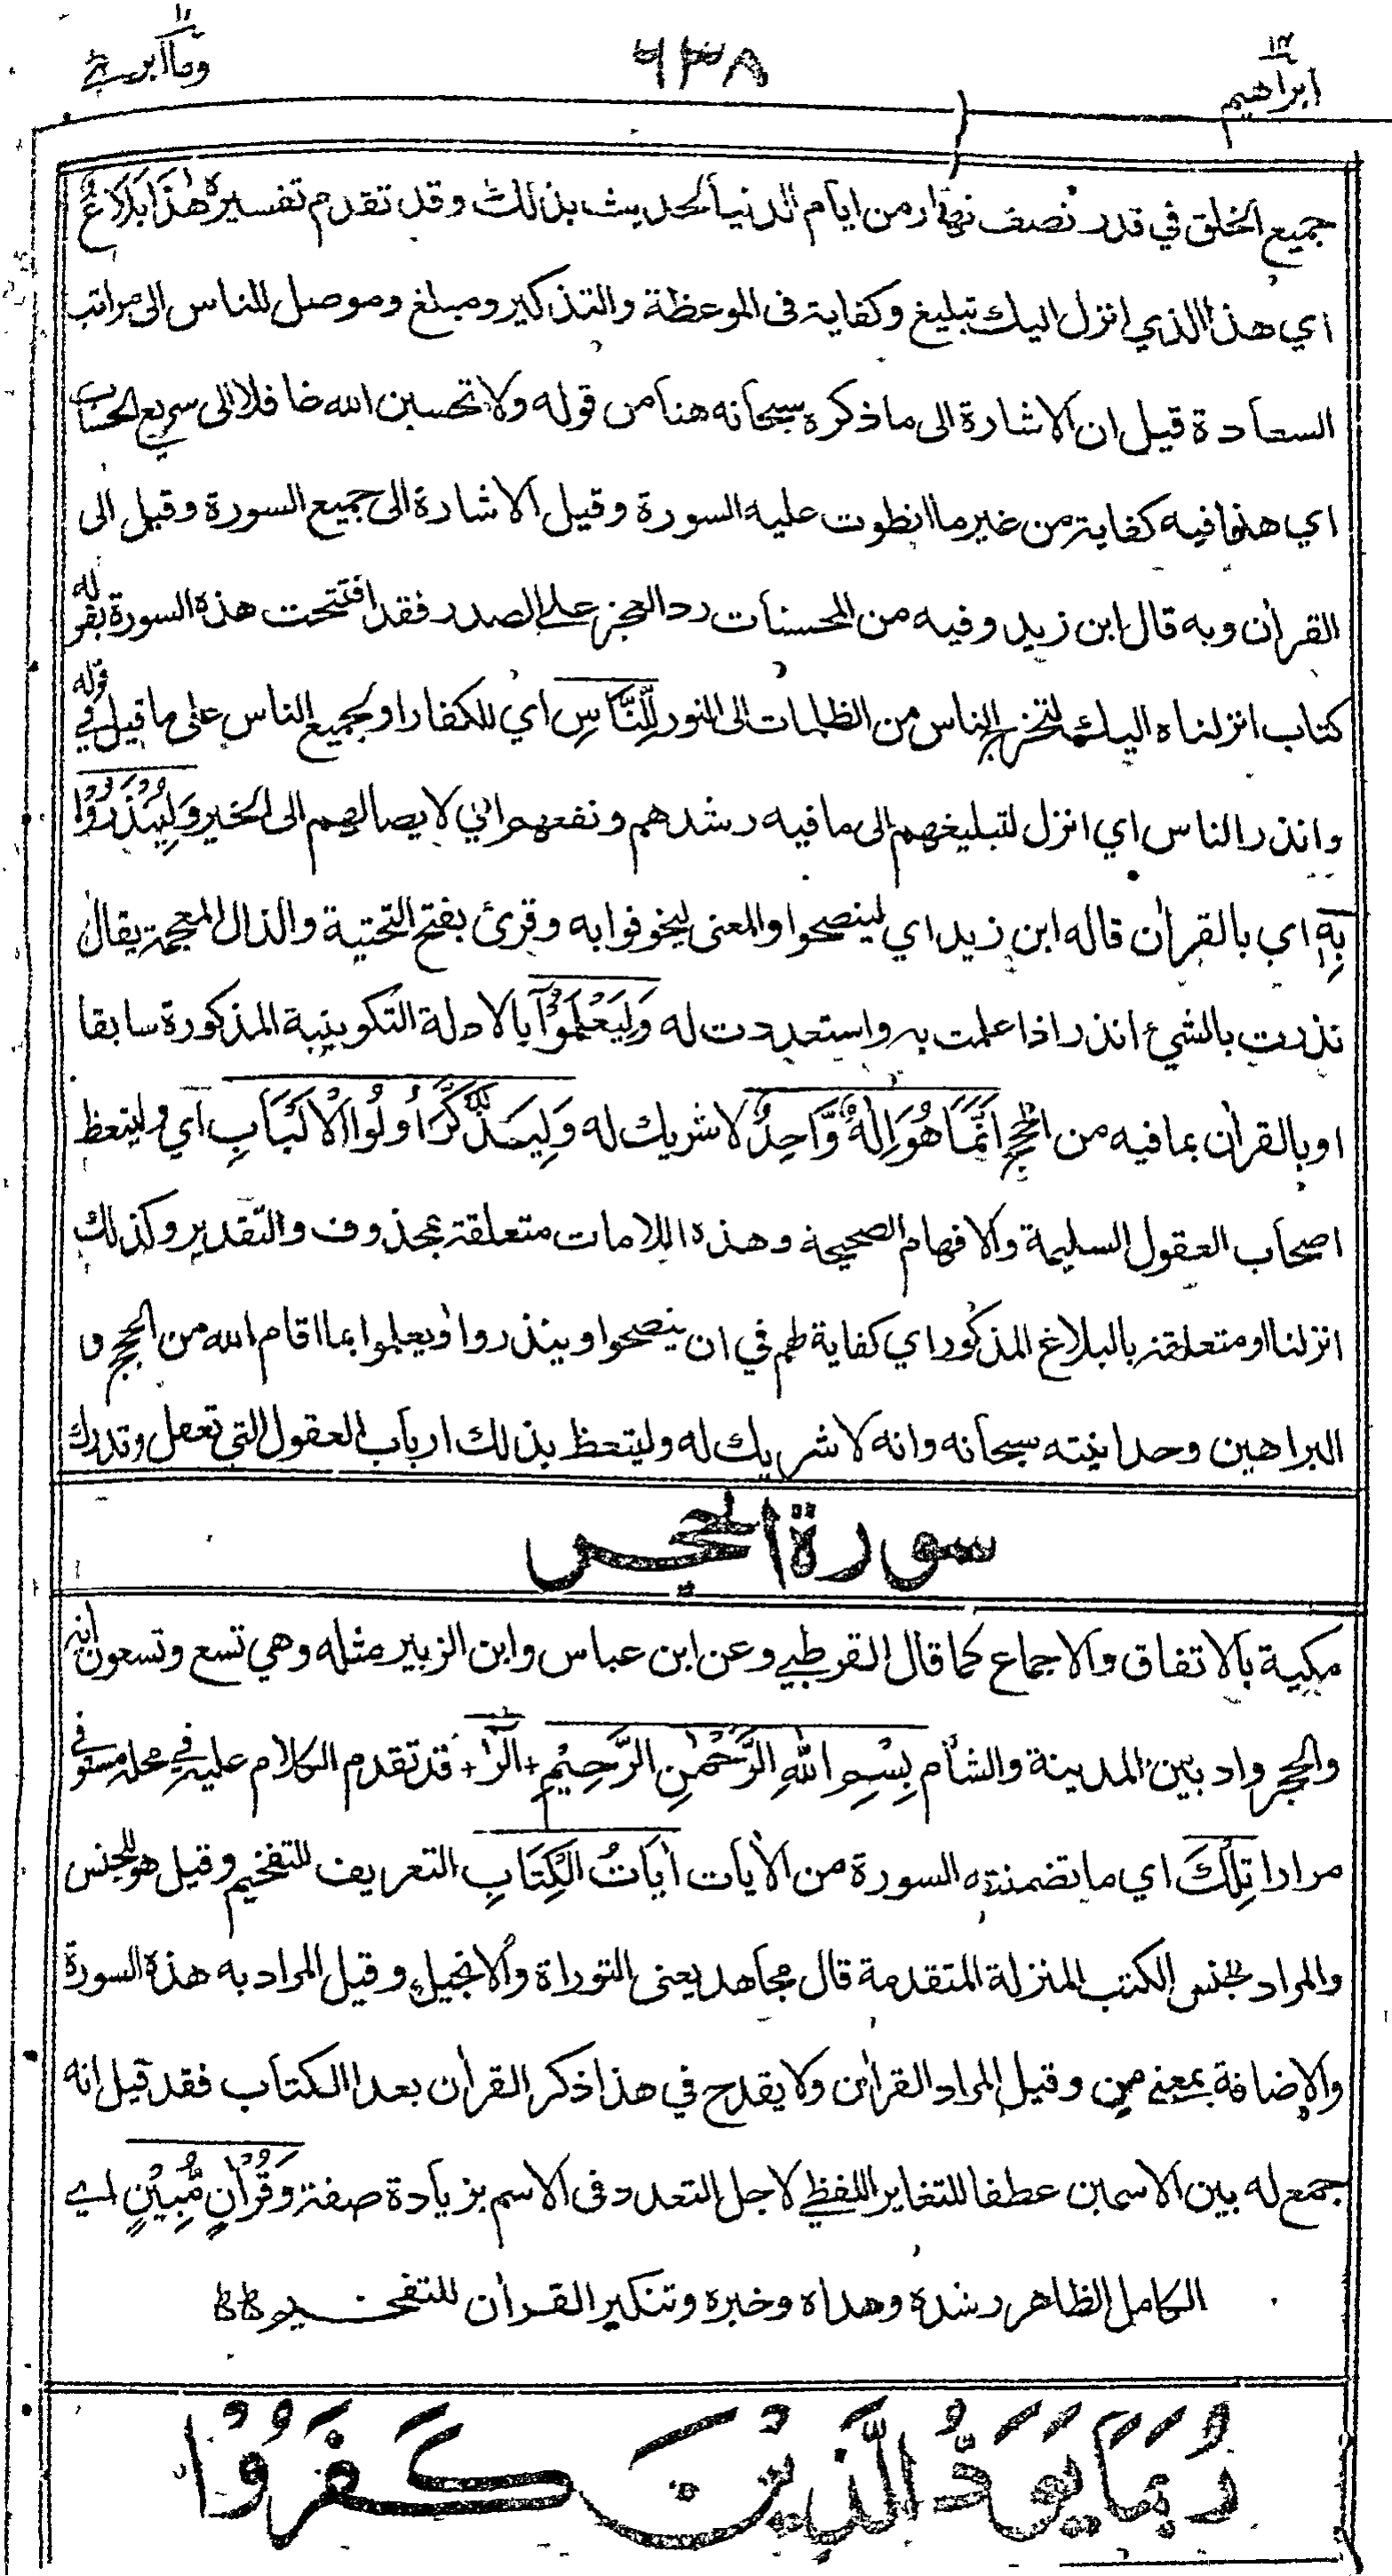 ابراهيم ١٤
٦٣٨
وما ابرئ ١٣
جميع الخلق في قدر نصف نهار من ايام الدنيا الحديث بذلك وقد تقدم تفسيره هٰذَا بَلَاغٌ
اي هذا الذي انزل اليك تبليغ وكفاية فى الموعظة والتذكير ومبلغ وموصل للناس الى مراتب
السعادة قيل ان الاشارة الى ما ذكره سبحانه هنا من قوله ولا تحسبن الله غافلا الى سريع الحساب
اي هذا فيه كفاية من غير ما انطوت عليه السورة وقيل الاشارة الى جميع السورة وقيل الى
القرأن وبه قال ابن زيد وفيه من المحسنات رد العجز على الصدر فقد افتتحت هذه السورة بقوله
كتاب انزلناه اليك لتخرج الناس من الظلمات الى النور لِلنَّاسِ اي للكفار او لجميع الناس على ما قيل في قوله
وانذر الناس اي انزل لتبليغهم الى ما فيه رشدهم ونفعهم اي لايصالهم الى الخير وَلِيُنْذَرُوْا
بِهٖ اي بالقرأن قاله ابن زيد اي لينصحوا والمعنى ليخوفوا به وقرئ بفتح التحتية والذال المعجمة يقال
نذرت بالشئ انذر اذا علمت به واستعددت له وَلِيَعْلَمُوْآ بالادلة التكوينية المذكورة سابقا
او بالقرأن بما فيه من الحجج اَنَّمَا هُوَ اِلٰهٌ وَّاحِدٌ لا شريك له وَلِيَذَّكَّرَ أُولُوا الْأَلْبَابِ اي وليتعظ
اصحاب العقول السليمة والافهام الصحيحة وهذه اللامات متعلقة بمحذوف والتقدير وكذلك
انزلنا او متعلقة بالبلاغ المذكور اي كفاية لهم في ان ينصحوا وينذروا ويعلموا بما اقام الله من الحجج و
البراهين وحدانيته سبحانه وانه لا شريك له وليتعظ بذلك ارباب العقول التي تعقل وتدرك
سورة الحجر
مكية بالاتفاق والاجماع كما قال القرطبي وعن ابن عباس وابن الزبير مثله وهي تسع وتسعون اية
والحجر واد بين المدينة والشأم بِسْمِ اللّٰهِ الرَّحْمٰنِ الرَّحِيْمِ + الٓرٰ + قد تقدم الكلام عليه في محله مستوفى
مرارا تِلْكَ اي ما تضمنته السورة من الأيات اٰيَاتُ الْكِتَابِ التعريف للتفخيم وقيل هو للجنس
والمراد جنس الكتب المنزلة المتقدمة قال مجاهد يعنى التوراة والانجيل وقيل المراد به هذه السورة
والاضافة بمعنى من وقيل المراد القرأن ولا يقدح في هذا ذكر القرأن بعد الكتاب فقد قيل انه
جمع له بين الاسمين عطفا للتغاير اللفظي لاجل التعدد فى الاسم بزيادة صفة وَقُرْاٰنٍ مُّبِيْنٍ اي
الكامل الظاهر رشده وهداه وخبره وتنكير القرأن للتفخيم
رُبَمَا يَوَدُّ الَّذِيْنَ كَفَرُوْا